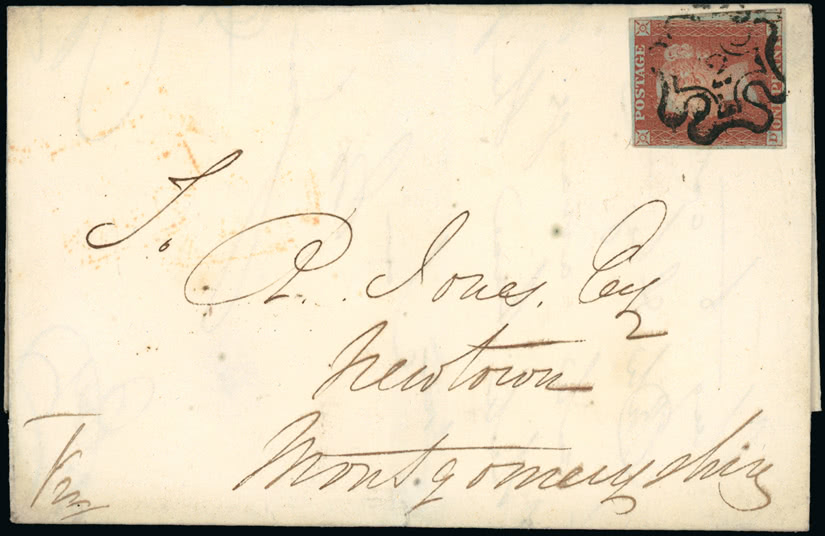 POSTAGE
ONE PENNY
D
J. A. Jones, Esq
Newtown
Montgomeryshire